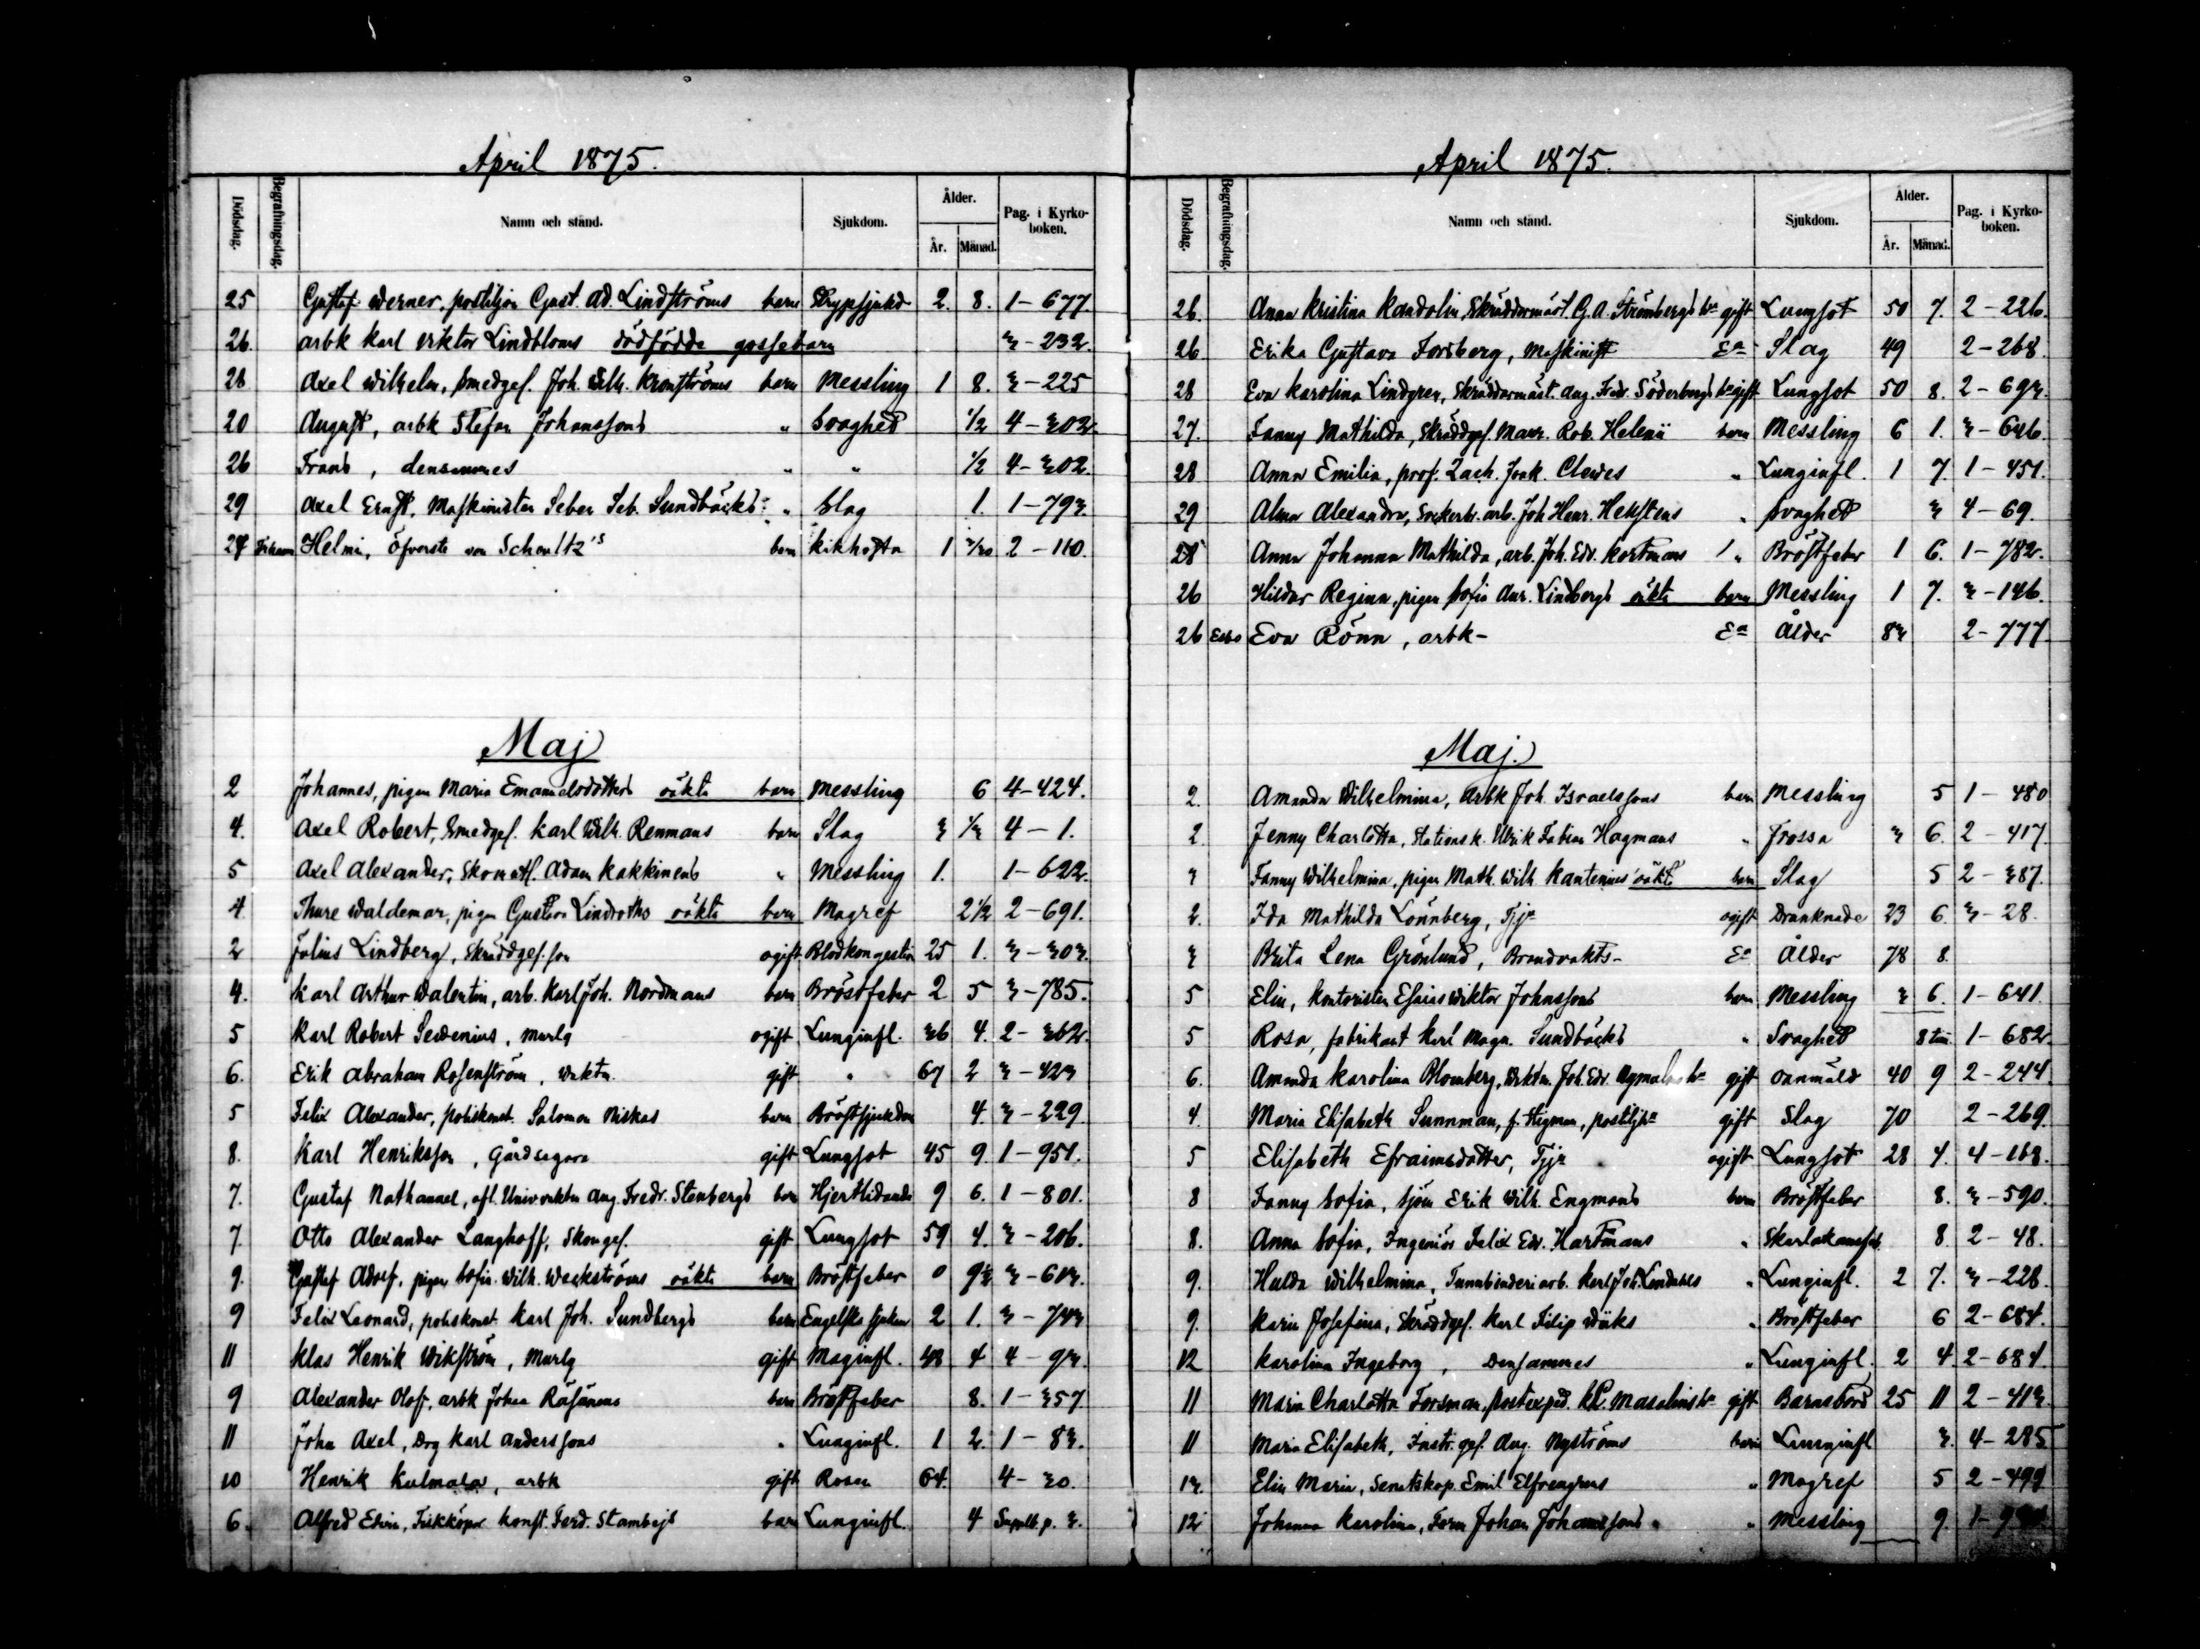 April 1875.
Dödsdag. Begrafningsdag. Namn och stånd. Sjukdom. Ålder. År. Månad. Pag. i Kyrkoboken.
25 Gustaf Werner, postiljon Gust. Ad. Lindströms barn Strypsjukd 2. 8. 1-677.
26. arbk Karl Viktor Lindbloms dödfödda gossebarn 3-232.
28 Axel Wilhelm, smedges. Joh. Wilh. Kronströms barn Messling 1 8. 3-225
20 August, arbk Stefan Johanssons " Svaghet 1/2 4-302.
26 Frans, densammes " " 1/2 4-302.
29 Axel Ernst, Maskinisten Seb. Sundbäcks " Slag 1. 1-793.
Helmi, Öfverste von Schoultz's barn kikhosta 1 2-110.
Maj
2 Johannes, pigan Maria Emanuelsdotters oäkta barn Messling 6 4-424.
4. Axel Robert, Smedges. Karl Wilh. Renmans barn Slag 3 1/3 4-1.
5 Axel Alexander, Adam Kakkinens " Messling 1. 1-622.
4 Thure Waldemar, pigan Gustava Lindroths oäkta barn Magref 2 1/2 2-691.
2 Julius Lindberg, Skräddges. son ogift Blodkongestion 25 1. 3-303.
4. Karl Arthur Valentin, arb. Karl Joh. Nordmans barn Bröstfeber 2 5 3-785.
5 Karl Robert Sevenius, murlg ogift Lunginfl. 36 4. 2-362.
6. Erik Abraham Rosenström, Vaktm. gift " 67 2 3-423
5 Felix Alexander, poliskonst. Salomon Niskas barn Bröstsjukdom 4. 3-229.
8. Karl Henriksson, Gårdsegare gift Lungsot 45 9. 1-951.
7. Gustaf Nathanael, afl. Univ. vaktm Aug. Fredr. Stenbergs barn Hjertlidande 9 6. 1-801.
7. Otto Alexander Langhoff, Skomges. gift Lungsot 59 4. 3-206.
9. Gustaf Adolf, pigan Sofia Wilh. Weckströms oäkta barn Bröstfeber 0 9 1/2 3-613.
9 Felix Leonard, poliskonst. Karl Joh. Sundbergs barn Engelska sjukan 2 1. 3-743
11 Klas Henrik Wikström, Murlg gift Maginfl. 48 4 4-93.
9 Alexander Olof, arbk Johan Räsänens barn Bröstfeber 8. 1-357.
11 John Axel, Drg Karl Anderssons " Lunginfl. 1 2. 1-83.
10 Henrik Kulmala, arbk gift Rosen 64. 4-30.
6. Alfred Edvin, Konst. Ferd. Stambejs barn Lunginfl. 4 Suppl. p. 3.
April 1875.
Dödsdag. Begrafningsdag. Namn och stånd. Sjukdom. Ålder. År. Månad. Pag. i Kyrkoboken.
26. Anna Kristina Kandolin, Skräddarmäst. G.A. Strömbergs h:a gift Lungsot 50 7. 2-226.
26 Erika Gustava Forsberg, Maskinist Ea Slag 49 2-268.
28 Eva Karolina Lindgren, Skräddarmäst. Aug. Fredr. Söderbergs h:a gift Lungsot 50 8. 2-693.
27. Fanny Mathilda, Skräddges. Maur. Rob. Helenii barn Messling 6 1. 3-646.
28 Anna Emilia, prof. Zach. Joak. Cleves " Lunginfl. 1 7. 1-451.
29 Alma Alexandra, Sockerbr. arb. Joh Henr. Hellstens " Svaghet 3 4-69.
28 Anna Johanna Mathilda, arb. Joh. Edv. Kortmans " Bröstfeber 1 6. 1-782.
26 Hildur Regina, pigan Sofia Aur. Lindbergs oäkta barn Messling 1 7. 3-146.
26 Esbo Eva Rönn, arbk- Ea Ålder 83 2-777.
Maj.
2. Amanda Wilhelmina, Arbk Joh. Israelssons barn Messling 5 1-480
2. Jenny Charlotta, Stationsk. Ulrik Fabian Hagmans " Frossa 3 6. 2-417.
3 Fanny Wilhelmina, pigan Math. Wilh. Kantenius' oäkta barn Slag 5 2-387.
2. Ida Mathilda Lönnberg, Tjr ogift Drunknade 23 6. 3-28.
3 Brita Lena Grönlund, Brandvakts- Ea Ålder 78 8.
5 Elin, Kontoristen Esaias Wiktor Johnssons barn Messling 3 6. 1-641.
5 Rosa, fabrikant Karl Magn. Sundbäcks " Svaghet 8 tim. 1-682.
6. Amanda Karolina Blomberg, Vaktm. Joh. Edv. h:a gift Oanmäld 40 9 2-244.
4. Maria Elisabeth Sunnman, f. Stigman, postilj h:a gift Slag 70 2-269.
5 Elisabeth Efraimsdotter, Tjr ogift Lungsot 28 4. 4-168.
8 Fanny Sofia, Sjöm Erik Wilh. Engmans barn Bröstfeber 8. 3-590.
8. Anna Sofia, Ingeniör Felix Edv. Hartmans " Skarlakansfeb. 8. 2-48.
9. Hulda Wilhelmina, Tunnbinderiarb. Karl Joh. Lindahls " Lunginfl. 2 7. 3-228.
9. Karin Josefina, Skräddges. Karl Filip Wiiks " Bröstfeber 6 2-684.
12 Karolina Ingeborg, Densammes " Lunginfl. 2 4 2-684.
11 Maria Charlotta Forsman, postexped. Masalins h:a gift Barnsbörd 25 11 2-413.
11 Maria Elisabeth, Instr. ges. Aug. Nyströms barn Lunginfl 3. 4-285
13. Elin Maria, Senatskop. Emil Elfvengrens " Magref 5 2-499
12 Johanna Karolina, Form Johan Johanssons " Messling 9.